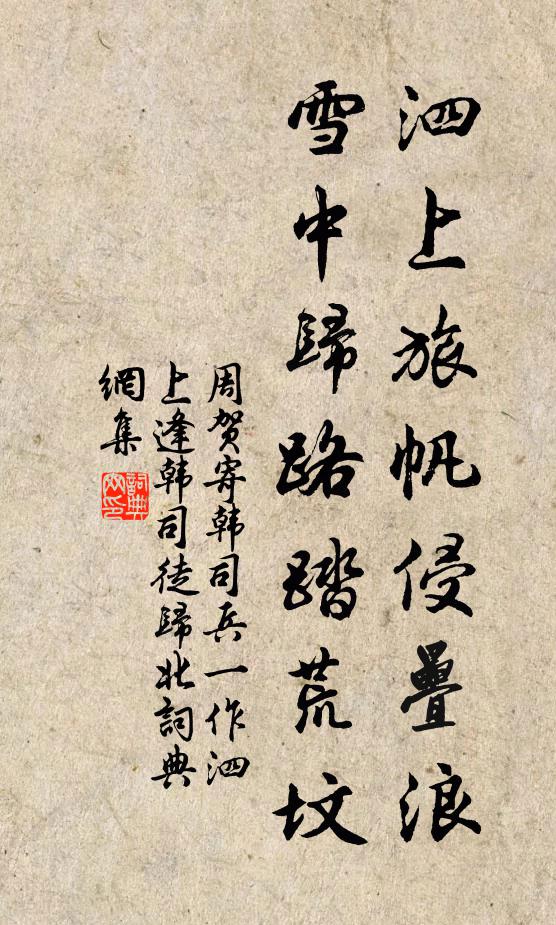 泗上旅帆侵疊浪
雪中歸路踏荒坟
周贺寄韩司兵一作泗
上逢韩司徒歸北詞典
網集
詞典
网印